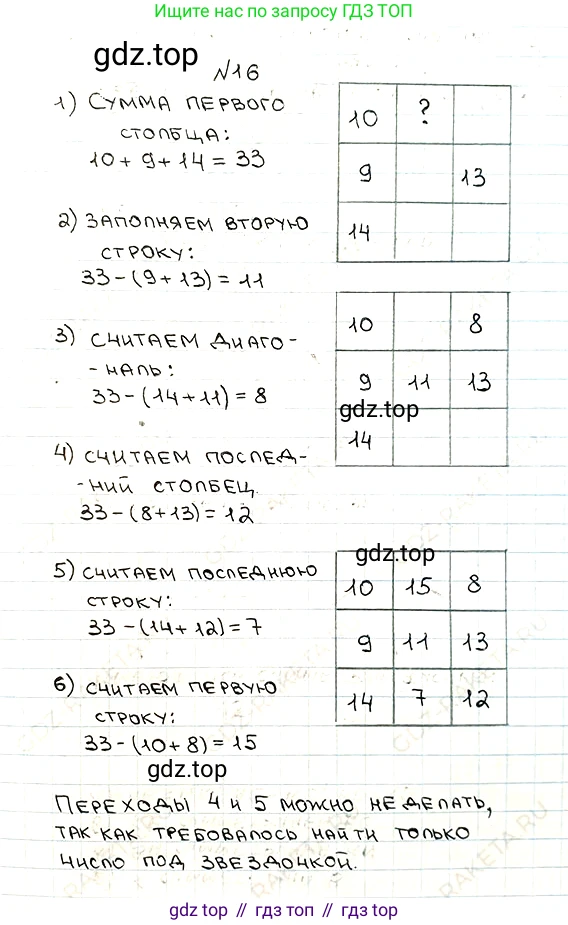 Ищите решение по запросу ГДЗ ТОП
gdz.top
№16
1) Сумма первого
столбца:
10 + 9 + 14 = 33
10 ?
9 13
14
2) Заполняем вторую
строку:
33 - (9 + 13) = 11
3) Считаем диаго-
-наль:
33 - (14 + 11) = 8
10 8
9 11 13
gdz.top
14
4) Считаем послед-
-ний столбец.
33 - (8 + 13) = 12
gdz.top
5) Считаем последнюю
строку:
33 - (14 + 12) = 7
10 15 8
9 11 13
14 7 12
6) Считаем первую
строку:
33 - (10 + 8) = 15
gdz.top
Переходы 4 и 5 можно не делать,
так как требовалось найти только
число под звездочкой.
gdz.top // гдз топ // gdz.top